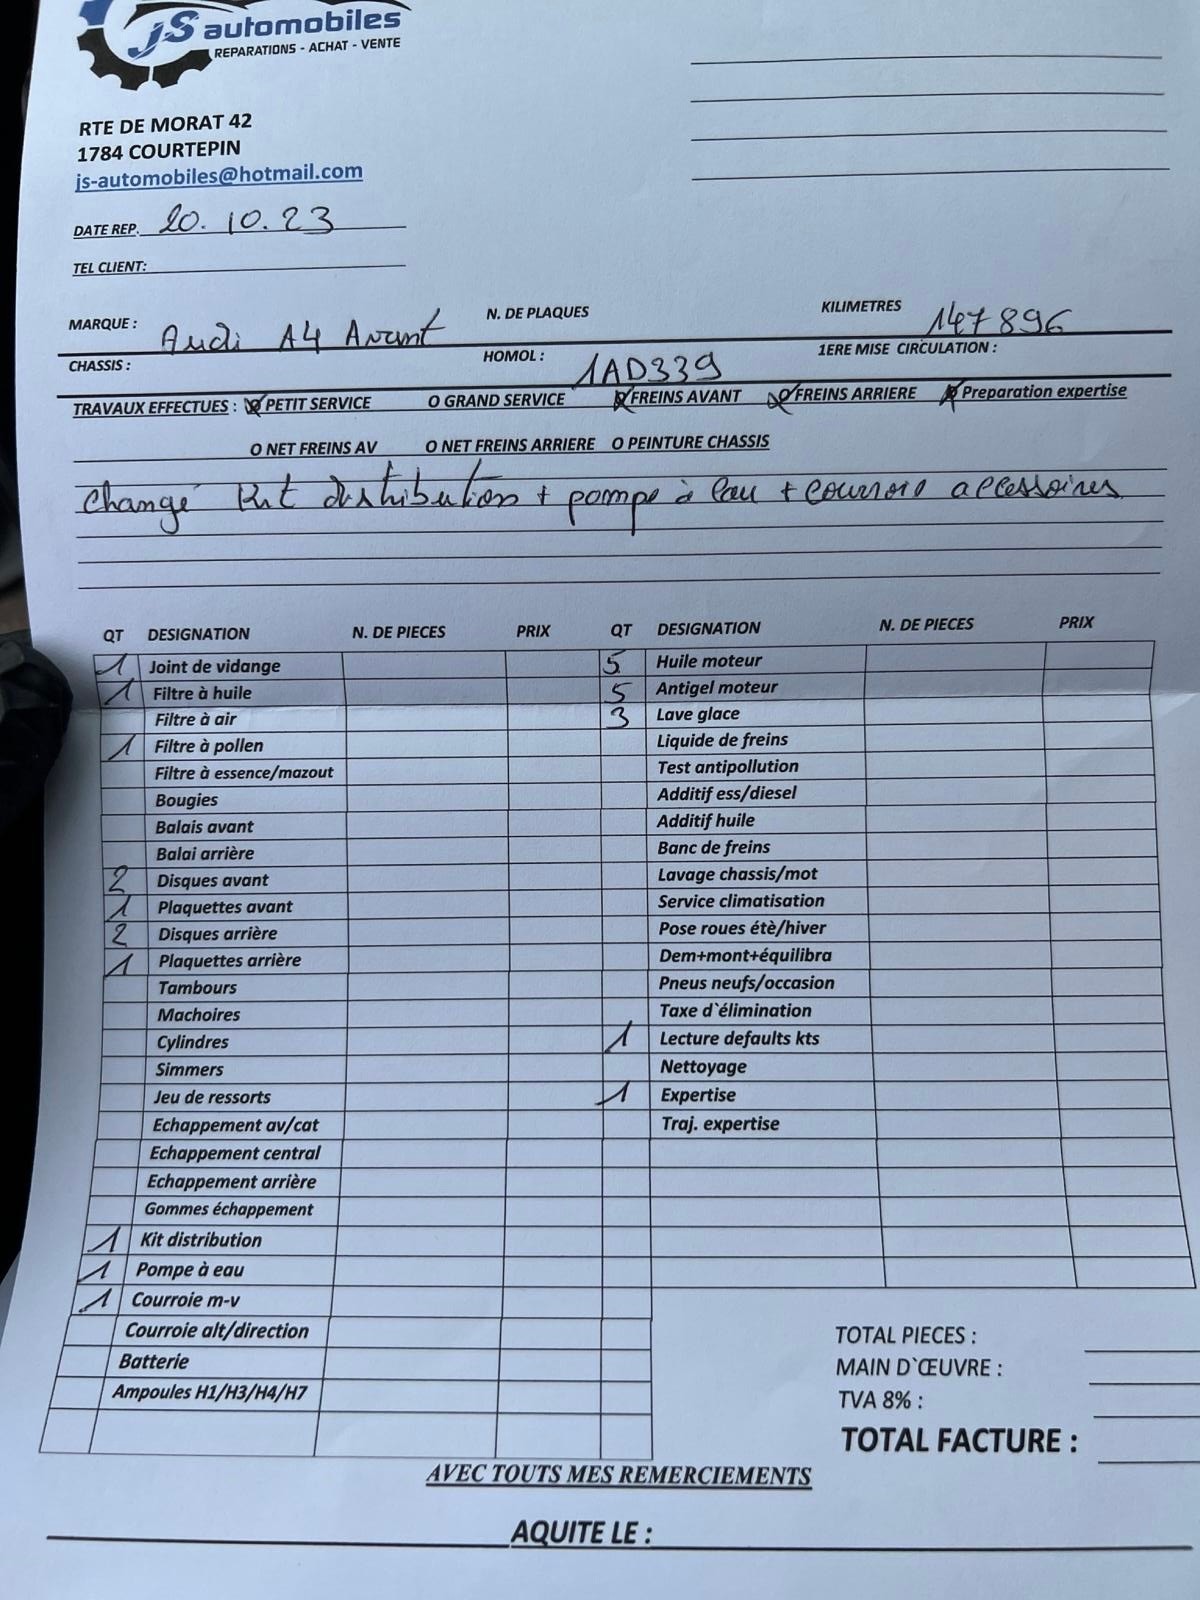 JS automobiles
REPARATIONS - ACHAT - VENTE
RTE DE MORAT 42
1784 COURTEPIN
js-automobiles@hotmail.com
DATE REP. 20.10.23
TEL CLIENT:
MARQUE : Audi A4 Avant N. DE PLAQUES KILIMETRES 147896
CHASSIS : HOMOL : 1AD339 1ERE MISE CIRCULATION :
TRAVAUX EFFECTUES : PETIT SERVICE O GRAND SERVICE FREINS AVANT FREINS ARRIERE Preparation expertise
O NET FREINS AV O NET FREINS ARRIERE O PEINTURE CHASSIS
Changé Kit distribution + pompe à eau + courroie accessoires
QT DESIGNATION N. DE PIECES PRIX QT DESIGNATION N. DE PIECES PRIX
1 Joint de vidange 5 Huile moteur
1 Filtre à huile 5 Antigel moteur
Filtre à air 3 Lave glace
1 Filtre à pollen Liquide de freins
Filtre à essence/mazout Test antipollution
Bougies Additif ess/diesel
Balais avant Additif huile
Balai arrière Banc de freins
2 Disques avant Lavage chassis/mot
1 Plaquettes avant Service climatisation
2 Disques arrière Pose roues étè/hiver
1 Plaquettes arrière Dem+mont+équilibra
Tambours Pneus neufs/occasion
Machoires Taxe d`élimination
Cylindres 1 Lecture defaults kts
Simmers Nettoyage
Jeu de ressorts 1 Expertise
Echappement av/cat Traj. expertise
Echappement central
Echappement arrière
Gommes échappement
1 Kit distribution
1 Pompe à eau
1 Courroie m-v
Courroie alt/direction
Batterie
Ampoules H1/H3/H4/H7
TOTAL PIECES :
MAIN D`ŒUVRE :
TVA 8% :
TOTAL FACTURE :
AVEC TOUTS MES REMERCIEMENTS
AQUITE LE :